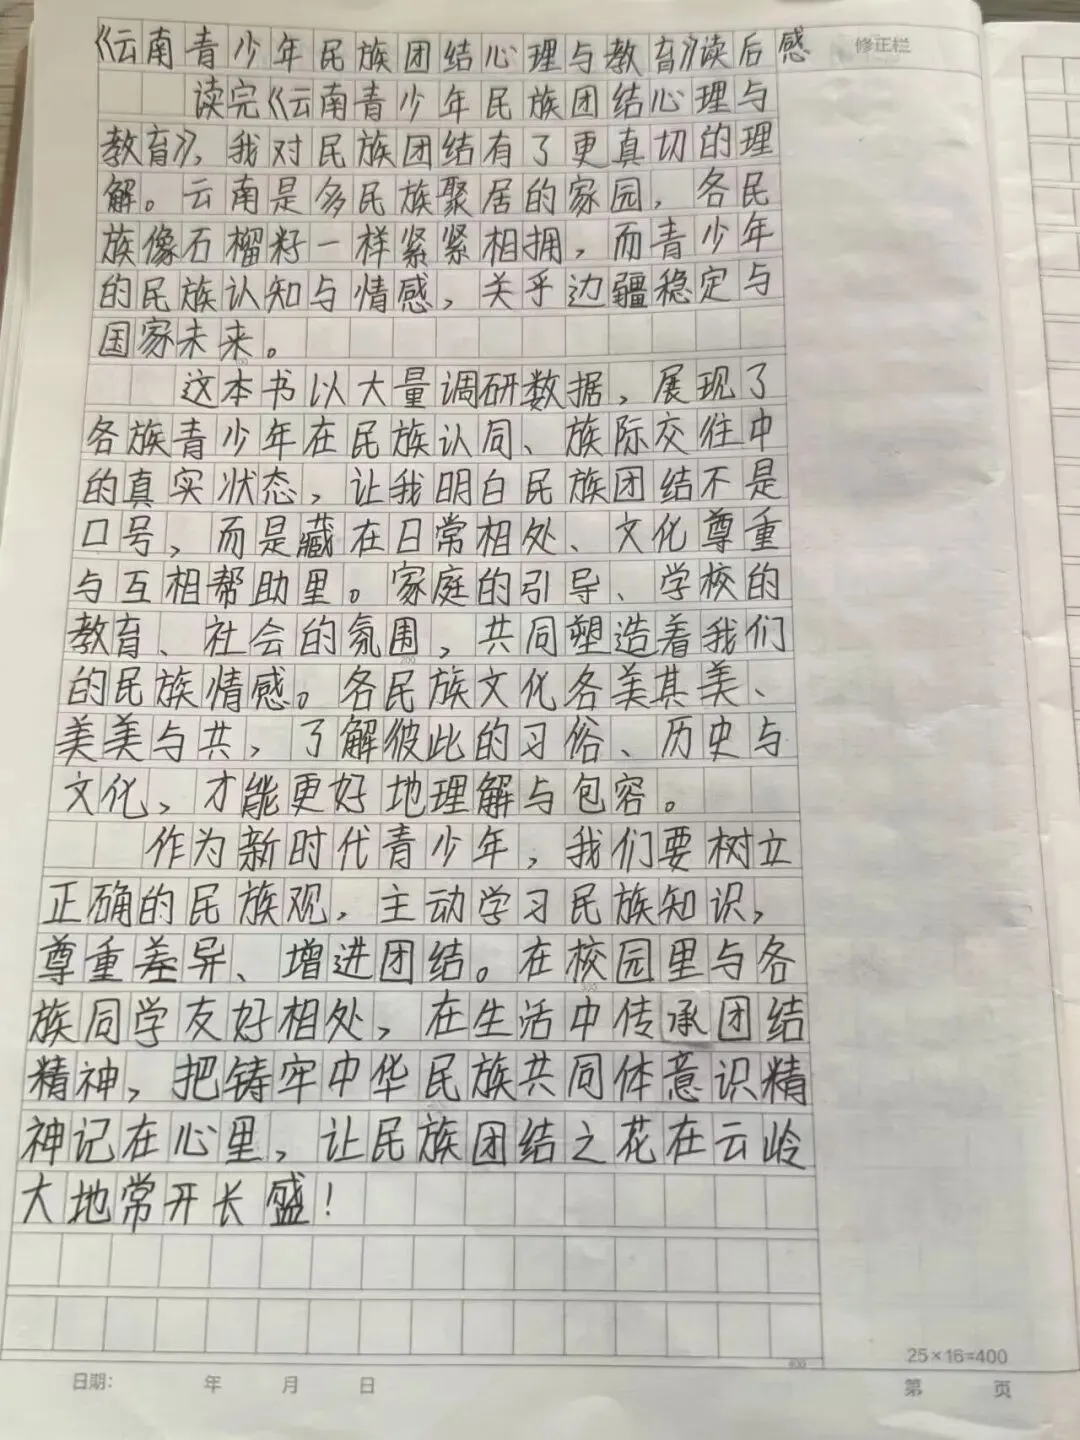 《云南青少年民族团结心理与教育》读后感
修正栏
读完《云南青少年民族团结心理与
教育》，我对民族团结有了更真切的理
解。云南是多民族聚居的家园，各民
族像石榴籽一样紧紧相拥，而青少年
的民族认知与情感，关乎边疆稳定与
国家未来。
100
这本书以大量调研数据，展现了
各族青少年在民族认同、族际交往中
的真实状态，让我明白民族团结不是
口号，而是藏在日常相处、文化尊重
与互相帮助里。家庭的引导、学校的
教育、社会的氛围，共同塑造着我们
200
的民族情感。各民族文化各美其美、
美美与共，了解彼此的习俗、历史与
文化，才能更好地理解与包容。
作为新时代青少年，我们要树立
正确的民族观，主动学习民族知识，
尊重差异、增进团结。在校园里与各
300
族同学友好相处，在生活中传承团结
精神，把铸牢中华民族共同体意识精
神记在心里，让民族团结之花在云岭
大地常开长盛！
400
25×16=400
日期： 年 月 日
第 页